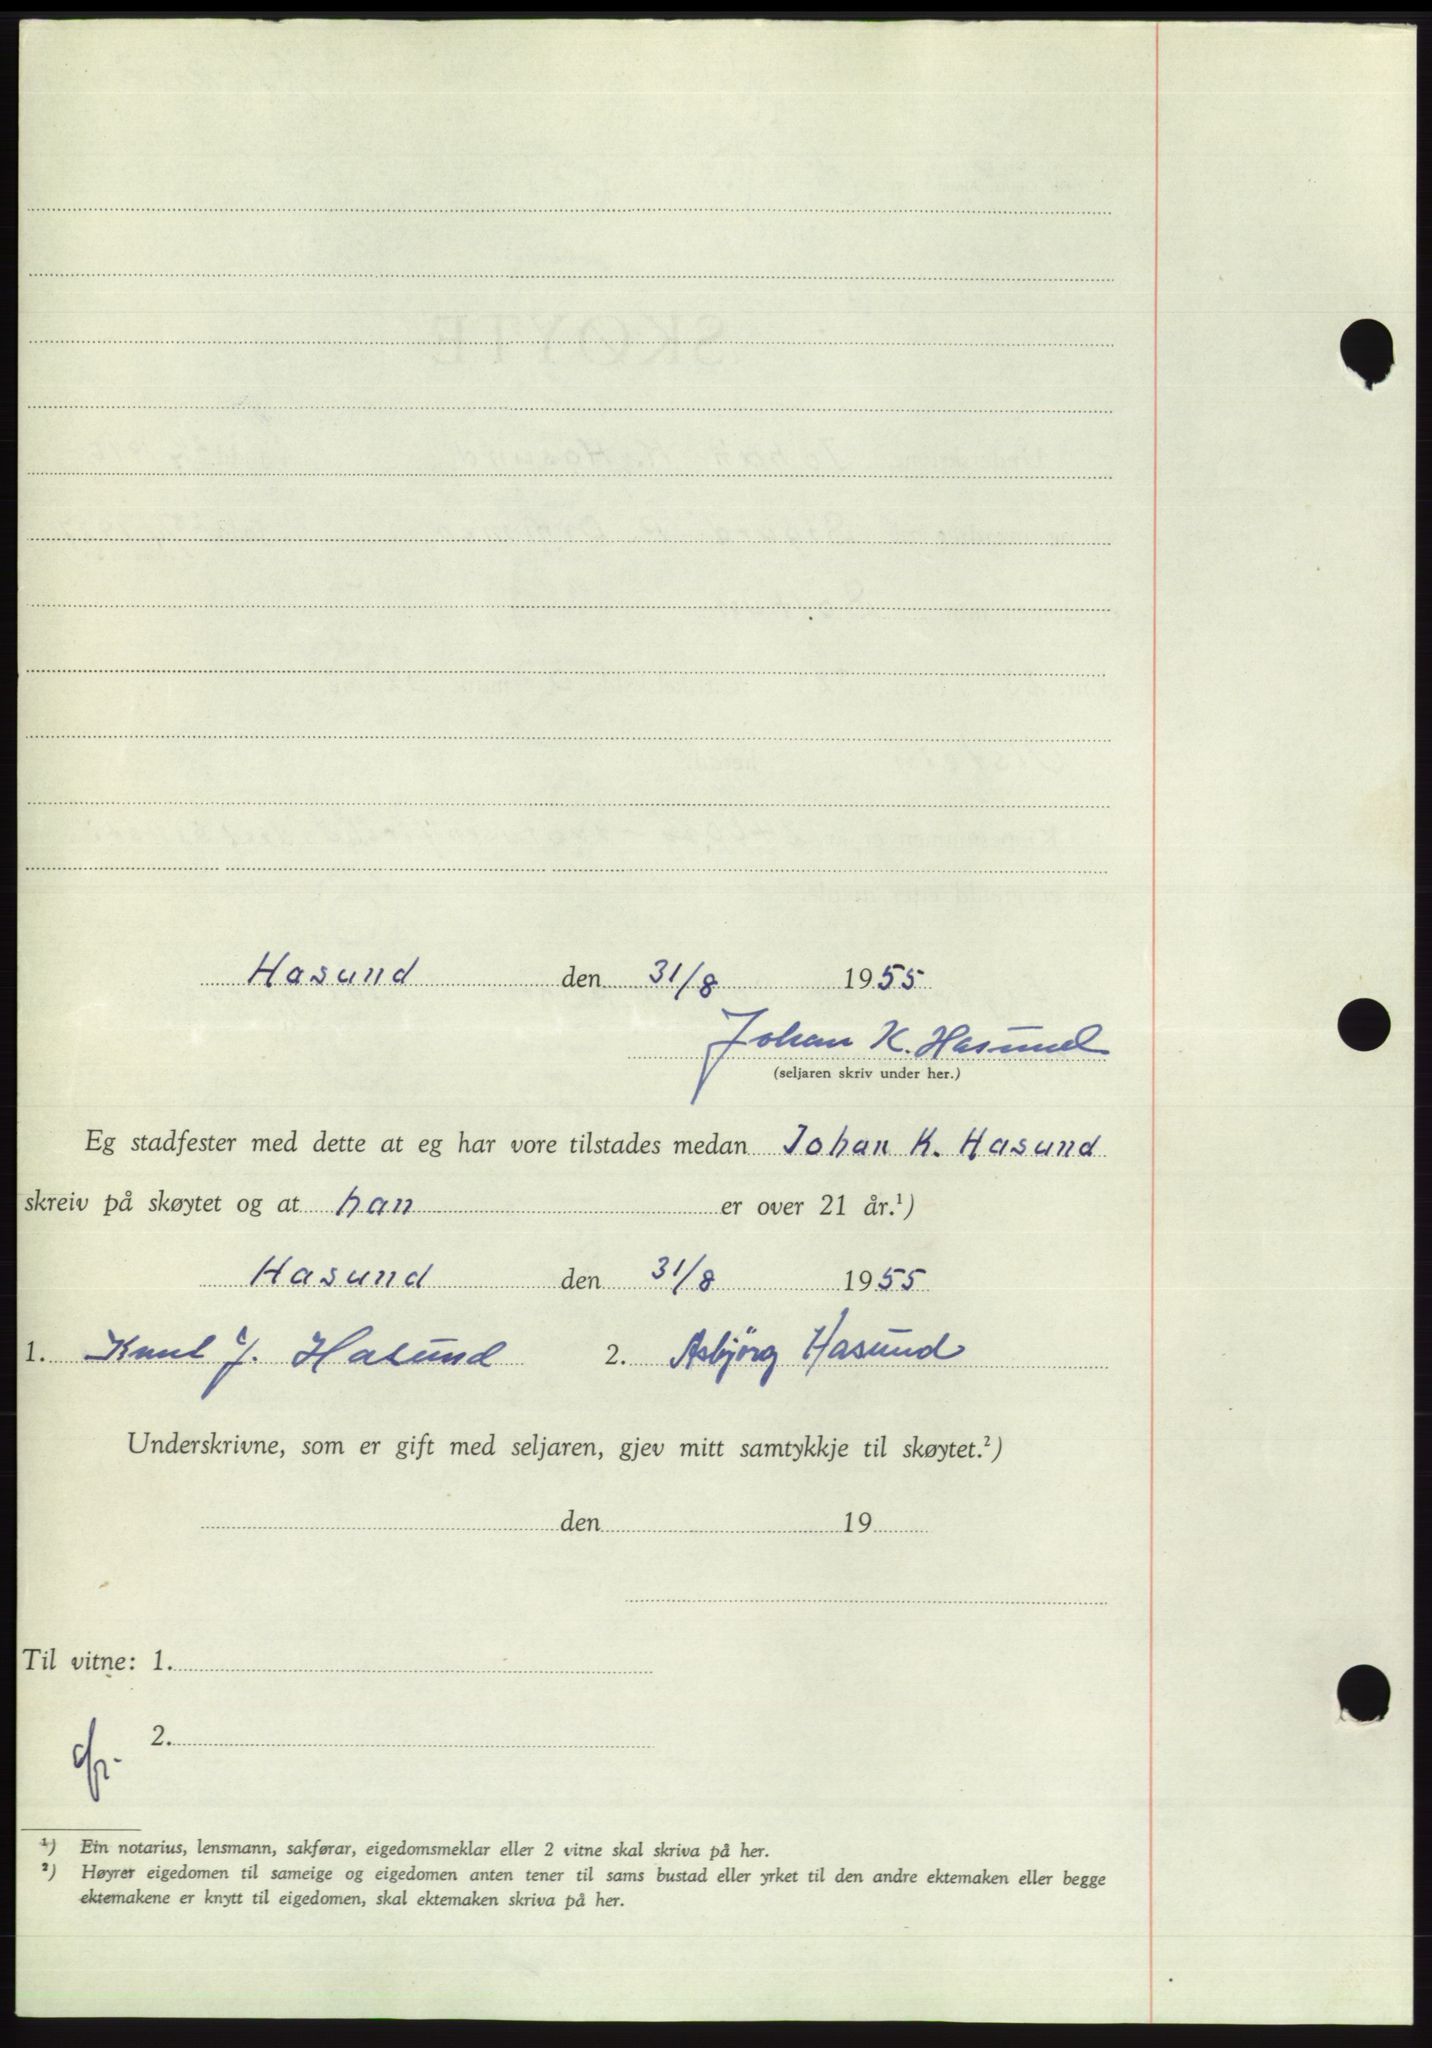 Hasund den 31/8 1955
Johan K. Hasund
(seljaren skriv under her.)
Eg stadfester med dette at eg har vore tilstades medan Johan K. Hasund
skreiv på skøytet og at han er over 21 år.¹)
Hasund den 31/8 1955
1. Knut J. Hasund 2. Asbjörg Hasund
Underskrivne, som er gift med seljaren, gjev mitt samtykkje til skøytet.²)
den 19
Til vitne: 1.
2.
¹) Ein notarius, lensmann, sakførar, eigedomsmeklar eller 2 vitne skal skriva på her.
²) Høyrer eigedomen til sameige og eigedomen anten tener til sams bustad eller yrket til den andre ektemaken eller begge
ektemakene er knytt til eigedomen, skal ektemaken skriva på her.